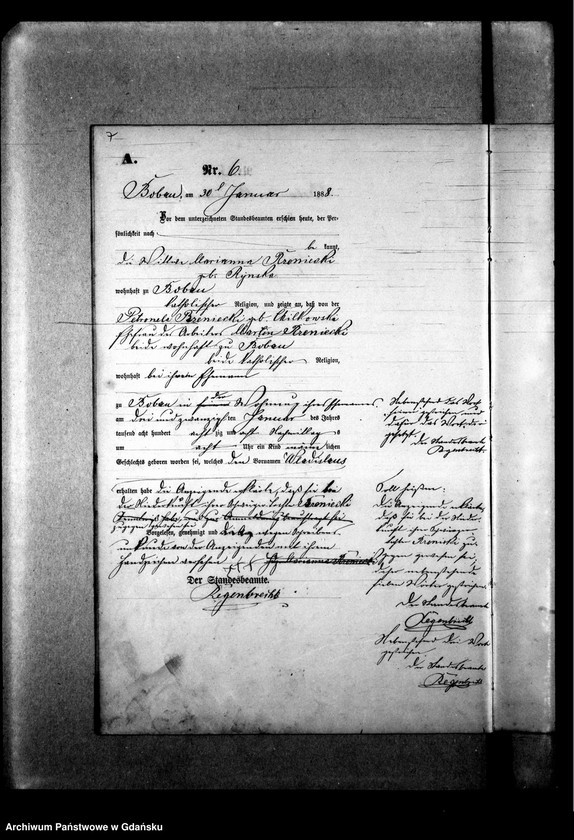 7
A.
Nr. 6.
Bobau, am 30t Januar 1888.
Vor dem unterzeichneten Standesbeamten erschien heute, der Per-
sönlichkeit nach
be kannt,
die Wittwe Marianna Kroniecki
geb. Rynska
wohnhaft zu Bobau
katholischer Religion, und zeigte an, daß von der
Petronela Kroniecki geb. Wilkowska
Ehefrau des Arbeiter Martin Kroniecki
beide wohnhaft zu Bobau
beide katholischer Religion,
wohnhaft bei ihrem Ehemann
zu Bobau in der Wohnung ihres Ehemannes
am drei und zwanzigsten Januar des Jahres
tausend acht hundert achtzig und acht Nachmittags
um acht Uhr ein Kind männlichen
Geschlechts geboren worden sei, welches den Vornamen Wladislaus
erhalten habe die Anzeigende erklärte, daß sie bei
der Niederkunft ihrer Schwiegertochter Kroniecki
zugegen gewesen sei
Vorgelesen, genehmigt und wegen Schreibens-
unkunde von der Anzeigenden mit ihrem
Handzeichen versehen +++
Der Standesbeamte.
Regenbrecht
Nebenstehend das Wort
Der Standesbeamte
Regenbrecht
Soll heißen:
Die Anzeigende erklärte,
daß sie bei der Nieder-
kunft ihrer Schwieger-
tochter Kroniecki zu-
gegen gewesen sei
Der Standesbeamte
Regenbrecht
Nebenstehend drei Worte
gestrichen
Der Standesbeamte
Regenbrecht
Archiwum Państwowe w Gdańsku